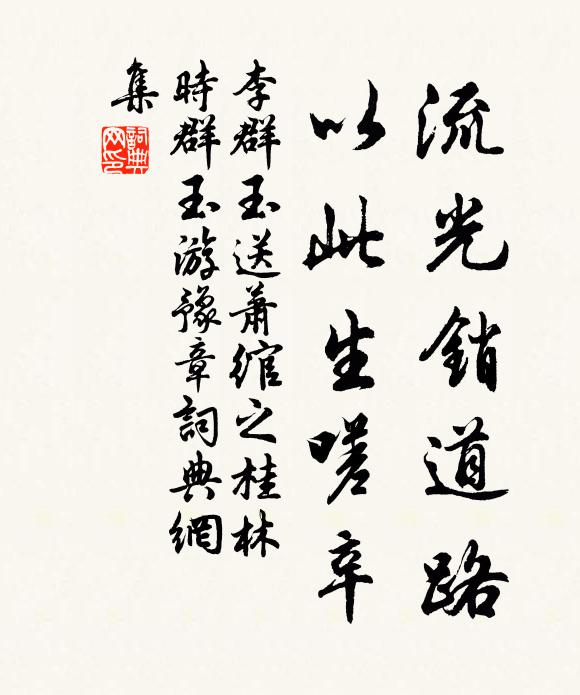 流光銷道路
以此生嗟辛
李群玉送蕭綰之桂林
時群玉游豫章詞典網
集
詞典
网印